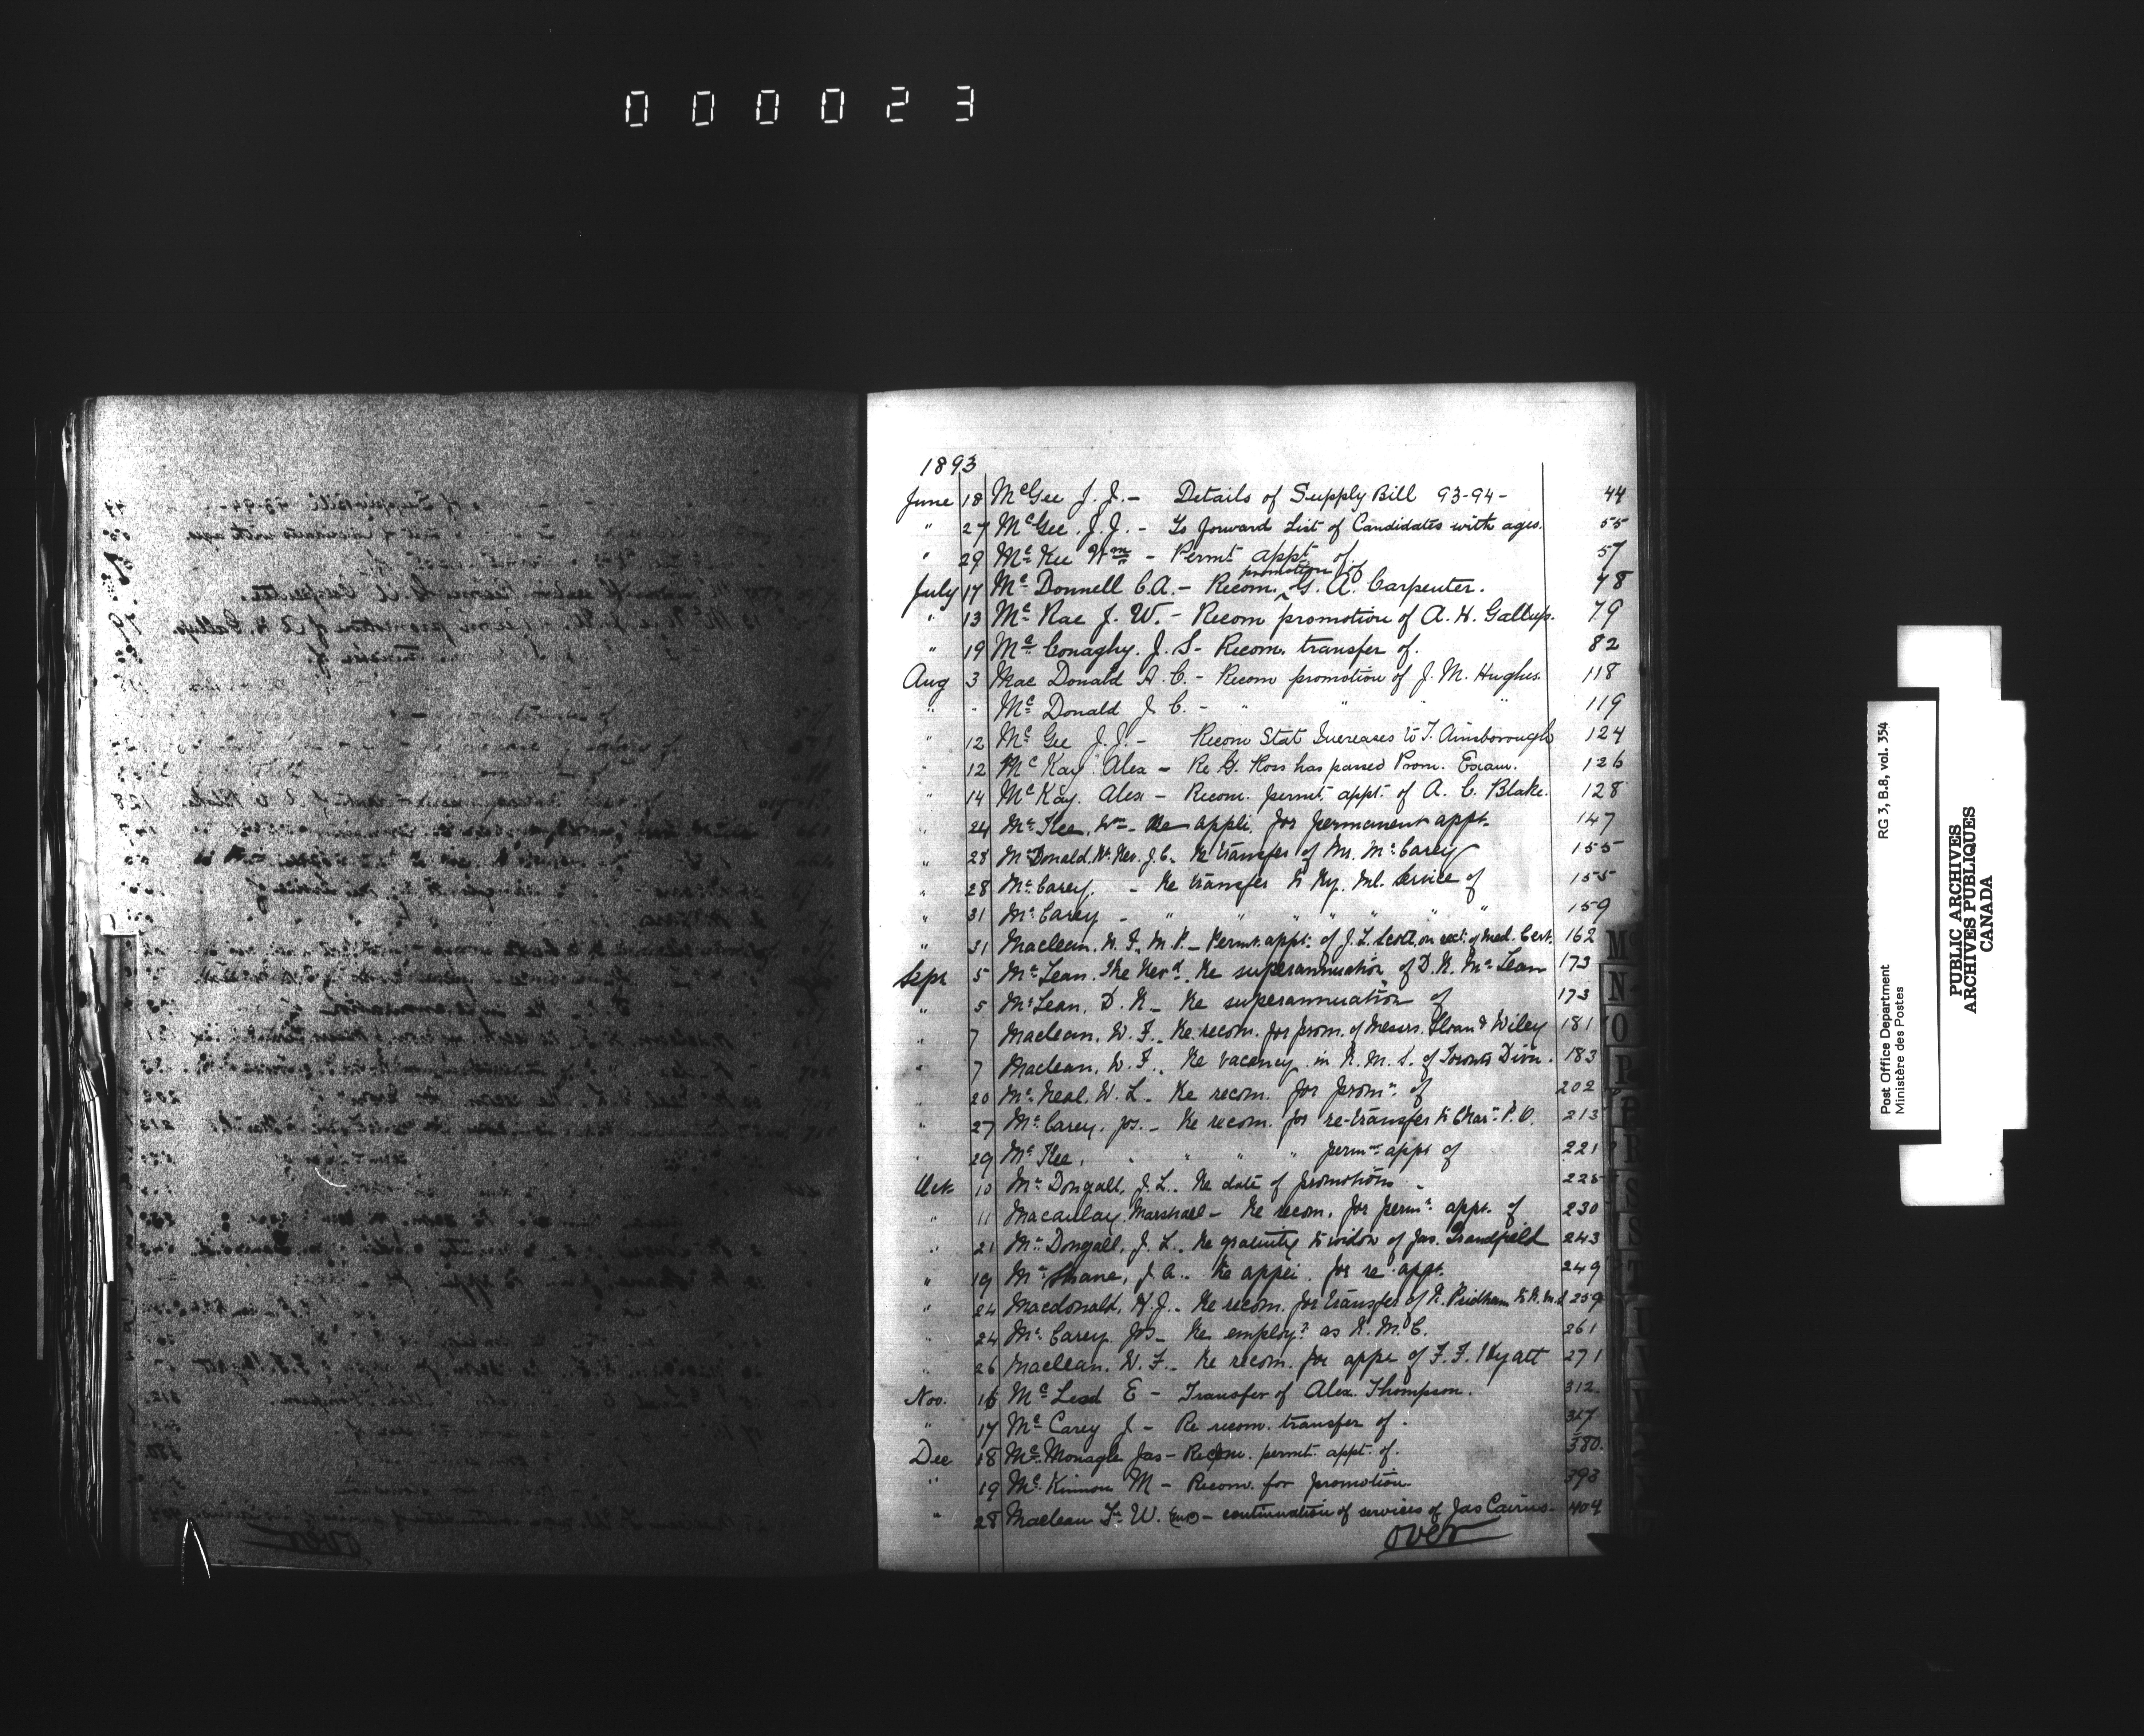 000023
1893
June 18 McGee J. J. - Details of Supply Bill 93-94 - 44
" 27 McGee, J. J. - To forward List of Candidates with ages. 55
" 29 McKee Wm - Permt appt of. 57
promotion of
July 17 McDonnell C. A. - Recom. ^ G. A. Carpenter. 78
" 13 McRae J. W. - Recom promotion of A. H. Gallup. 79
" 19 McConaghy. J. S - Recom. transfer of. 82
Aug 3 MacDonald A. C. - Recom promotion of J. M. Hughes. 118
" " McDonald J. C. - " " " " 119
" 12 McGee J. J. - Recom Stat Increases to T. Ainsborough 124
" 12 McKay Alex - Re G. Ross has passed Prom. Exam. 126
" 14 McKay. Alex - Recom. permt. appt. of A. C. Blake. 128
" 24 McKee, Wm - Re appli. for permanent appt. 147
" 28 McDonald, Rev. J. C. Re transfer of Mr. McCarey 155
" 28 McCarey. - Re transfer to Ry. Ml. Service of 155
" 31 McCarey - " " " " " " " 159
" 31 Maclean, W. F., M. P. - Permt. appt. of J. L. Scott, on rect. of Med. Cert. 162
Sept 5 McLean. The Revd. Re superannuation of D. R. McLean 173
" 5 McLean, D. R - Re superannuation of 173
" 7 Maclean, W. F. Re recom. for prom. of Messrs. Sloan & Wiley 181
" 7 Maclean, W. F. Re vacancy in R. M. S. of Toronto Divn. 183
" 20 McNeal, W. L. Re recom. for promn. of 202
" 27 McCarey, Jos. - Re recom. for re-transfer to Char. P. O. 213
" 29 McKee, " " " permt. appt of 221
Oct. 10 McDougall, J. L. Re date of promotions. 225
" 11 Macaulay, Marshall - Re recom. for permt. appt. of 230
" 21 McDougall, J. L. Re gratuity to widow of Jas. Grandfield 243
" 19 McShane, J. A. Re appli. for re-appt. 249
" 24 Macdonald, H. J. - Re recom. for transfer of R. Pridham to R. M. S 259
" 24 McCarey Jos - Re employt. as R. M. C. 261
" 26 Maclean, W. F. - Re recom. for appt of F. F. Hyatt 271
Nov. 16 McLeod E - Transfer of Alex. Thompson. 312
" 17 McCarey J - Re recom. transfer of. 317
Dec 18 McMonagle Jas - Recom. permt. appt. of. 380.
" 19 McKinnon M - Recom. for promotion 393
" 28 Maclean W. - continuation of services of Jas Cairns - 404
over
M
N
O
P
R
S
T
Post Office Department
Ministère des Postes
RG 3, B.8, vol. 354
PUBLIC ARCHIVES
ARCHIVES PUBLIQUES
CANADA